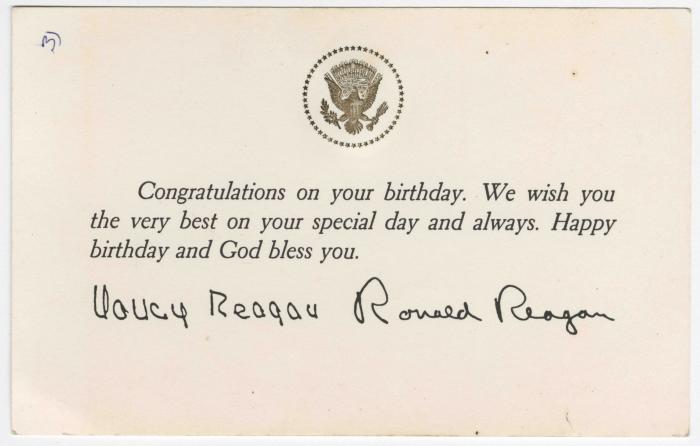 Congratulations on your birthday. We wish you
the very best on your special day and always. Happy
birthday and God bless you.
Nancy Reagan Ronald Reagan